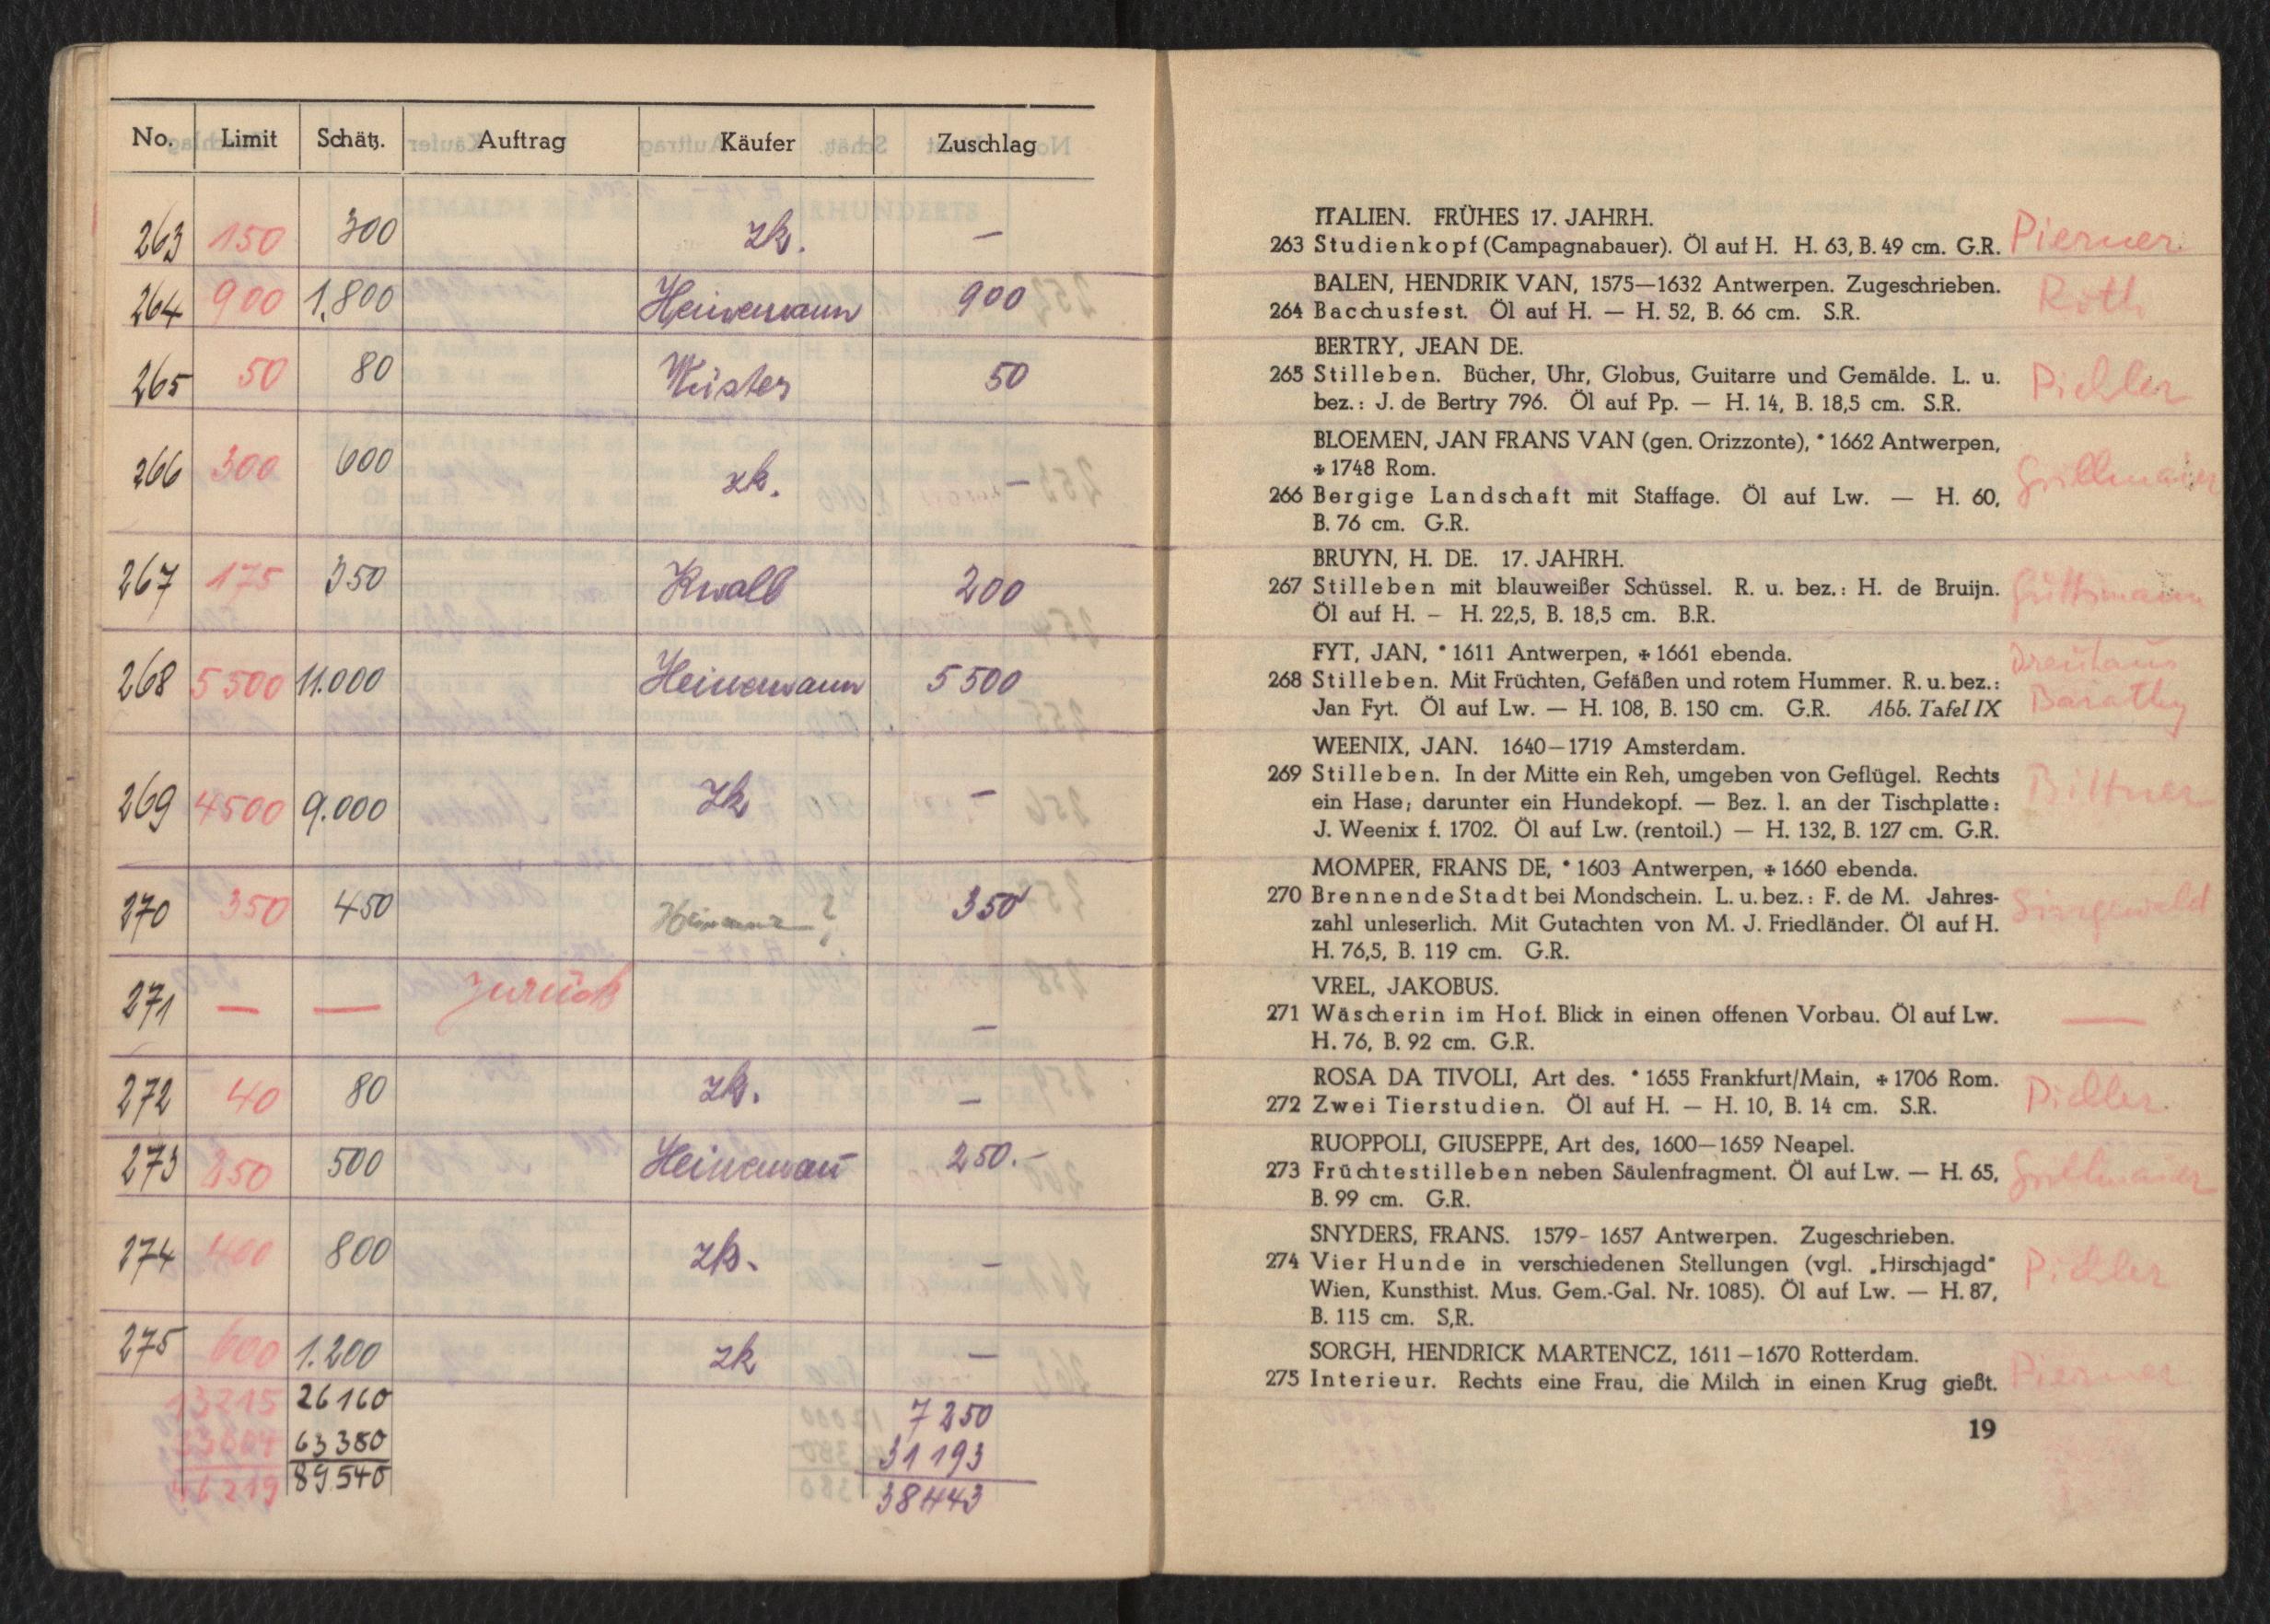 No. Limit Schätz. Auftrag Käufer Zuschlag
263 150 300 zk. —
264 900 1.800 Heinemann 900
265 50 80 Küster 50
266 300 600 zk. —
267 175 350 Knoll 200
268 5500 11.000 Heinemann 5500
269 4500 9.000 zk —
270 350 450 ? 350
271 — — zurück —
272 40 80 zk. —
273 250 500 Heinemann 250.—
274 400 800 zk. —
275 600 1.200 zk —
13215 26160 7250
63380 31193
89540 38443
ITALIEN. FRÜHES 17. JAHRH.
263 Studienkopf (Campagnabauer). Öl auf H. H. 63, B. 49 cm. G.R. Pierner
BALEN, HENDRIK VAN, 1575—1632 Antwerpen. Zugeschrieben.
264 Bacchusfest. Öl auf H. — H. 52, B. 66 cm. S.R. Roth
BERTRY, JEAN DE.
265 Stilleben. Bücher, Uhr, Globus, Guitarre und Gemälde. L. u. Pichler
bez.: J. de Bertry 796. Öl auf Pp. — H. 14, B. 18,5 cm. S.R.
BLOEMEN, JAN FRANS VAN (gen. Orizzonte), * 1662 Antwerpen,
✠ 1748 Rom.
266 Bergige Landschaft mit Staffage. Öl auf Lw. — H. 60, Grillmaier
B. 76 cm. G.R.
BRUYN, H. DE. 17. JAHRH.
267 Stilleben mit blauweißer Schüssel. R. u. bez.: H. de Bruijn. Güttsmann
Öl auf H. – H. 22,5, B. 18,5 cm. B.R.
FYT, JAN, * 1611 Antwerpen, ✠ 1661 ebenda.
268 Stilleben. Mit Früchten, Gefäßen und rotem Hummer. R. u. bez.:
Jan Fyt. Öl auf Lw. — H. 108, B. 150 cm. G.R. Abb. Tafel IX Barathy
WEENIX, JAN. 1640—1719 Amsterdam.
269 Stilleben. In der Mitte ein Reh, umgeben von Geflügel. Rechts Bittner
ein Hase; darunter ein Hundekopf. — Bez. l. an der Tischplatte:
J. Weenix f. 1702. Öl auf Lw. (rentoil.) — H. 132, B. 127 cm. G.R.
MOMPER, FRANS DE, * 1603 Antwerpen, ✠ 1660 ebenda.
270 Brennende Stadt bei Mondschein. L. u. bez.: F. de M. Jahres-
zahl unleserlich. Mit Gutachten von M. J. Friedländer. Öl auf H.
H. 76,5, B. 119 cm. G.R.
VREL, JAKOBUS.
271 Wäscherin im Hof. Blick in einen offenen Vorbau. Öl auf Lw. —
H. 76, B. 92 cm. G.R.
ROSA DA TIVOLI, Art des. * 1655 Frankfurt/Main, ✠ 1706 Rom.
272 Zwei Tierstudien. Öl auf H. — H. 10, B. 14 cm. S.R. Pichler
RUOPPOLI, GIUSEPPE, Art des, 1600—1659 Neapel.
273 Früchtestilleben neben Säulenfragment. Öl auf Lw. — H. 65, Grillmaier
B. 99 cm. G.R.
SNYDERS, FRANS. 1579- 1657 Antwerpen. Zugeschrieben.
274 Vier Hunde in verschiedenen Stellungen (vgl. „Hirschjagd" Pichler
Wien, Kunsthist. Mus. Gem.-Gal. Nr. 1085). Öl auf Lw. — H. 87,
B. 115 cm. S,R.
SORGH, HENDRICK MARTENCZ, 1611—1670 Rotterdam.
275 Interieur. Rechts eine Frau, die Milch in einen Krug gießt. Pierner
19